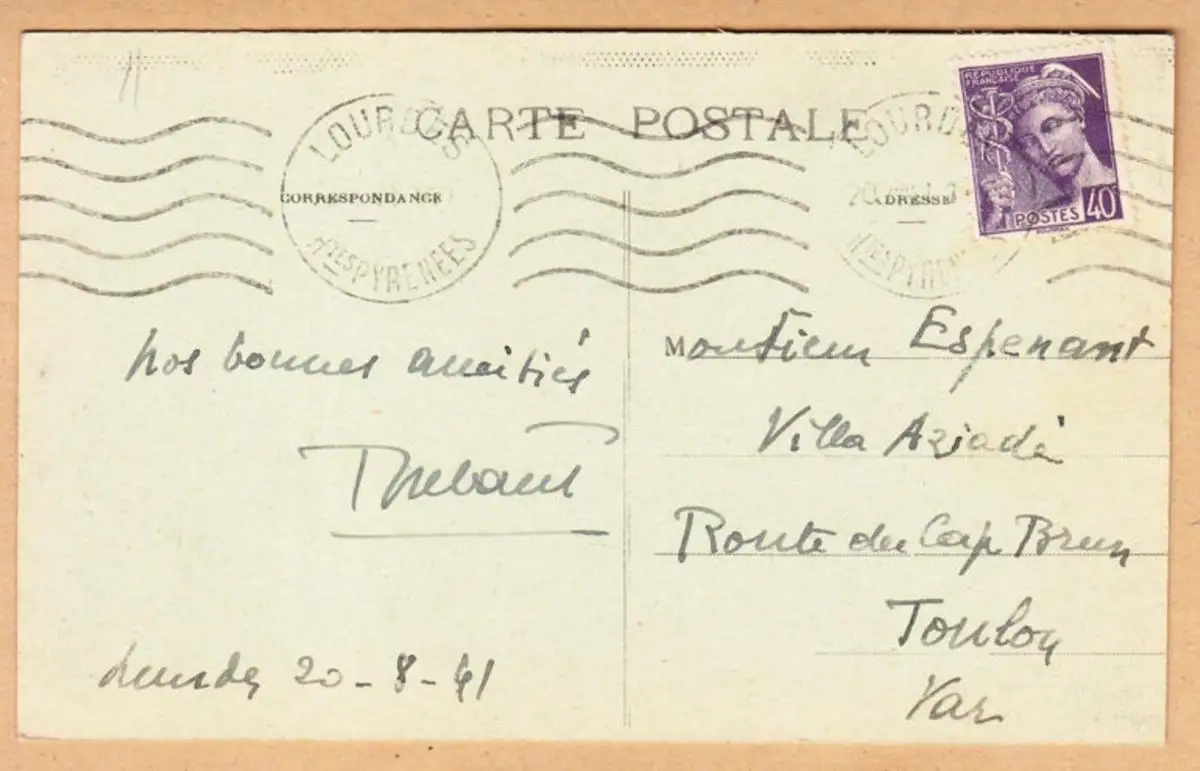 CARTE POSTALE
LOURDES
Htes PYRENEES
CORRESPONDANCE
LOURDES
Htes PYRENEES
ADRESSE
REPUBLIQUE
FRANÇAISE
POSTES 40
nos bonnes amitiés
Lourdes 20-8-41
Monsieur Espenant
Villa Aziadé
Route du Cap Brun
Toulon
Var